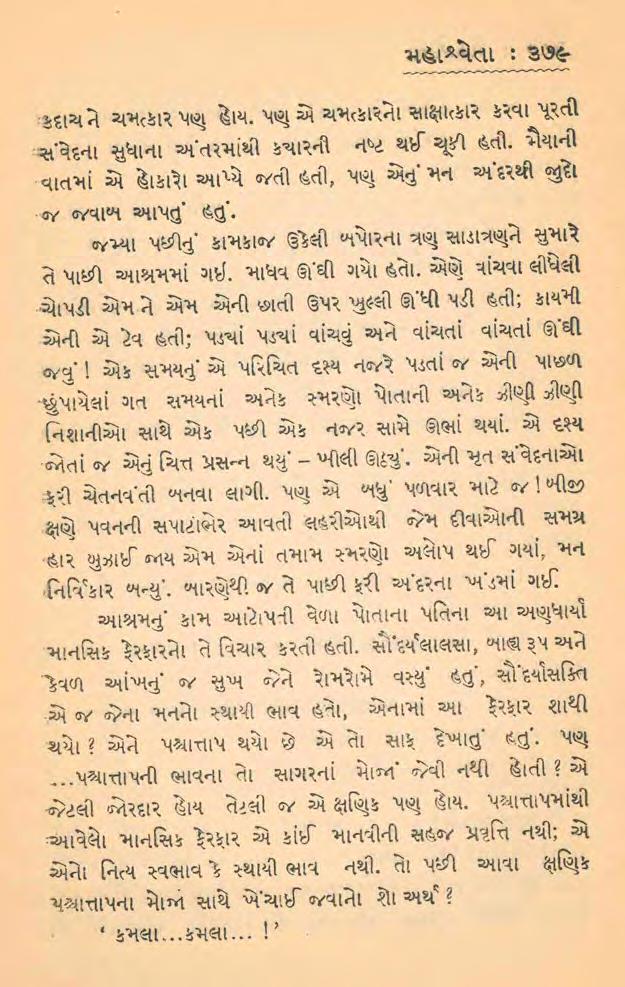 મહાશ્વેતા : ૩૭૯
કદાચ ને ચમત્કાર પણ હોય. પણ એ ચમત્કારનો સાક્ષાત્કાર કરવા પૂરતી
સંવેદના સુધાના અંતરમાંથી કયારની નષ્ટ થઈ ચૂકી હતી. મૈયાની
વાતમાં એ હોકારો આપ્યે જતી હતી, પણ એનું મન અંદરથી જુદો
જ જવાબ આપતું હતું.
જમ્યા પછીનું કામકાજ ઉકેલી બપોરના ત્રણ સાડાત્રણને સુમારે
તે પાછી આશ્રમમાં ગઈ. માધવ ઊંઘી ગયો હતો. એણે વાંચવા લીધેલી
ચોપડી એમ ને એમ એની છાતી ઉપર ખુલ્લી ઊંધી પડી હતી; કાયમી
એની એ ટેવ હતી; પડ્યાં પડ્યાં વાંચવું અને વાંચતાં વાંચતાં ઊંઘી
જવું ! એક સમયનું એ પરિચિત દૃશ્ય નજરે પડતાં જ એની પાછળ
છુપાયેલાં ગત સમયનાં અનેક સ્મરણો પોતાની અનેક ઝીણી ઝીણી
નિશાનીઓ સાથે એક પછી એક નજર સામે ઊભાં થયાં. એ દૃશ્ય
જોતાં જ એનું ચિત્ત પ્રસન્ન થયું – ખીલી ઊઠ્યું. એની મૃત સંવેદનાઓ
ફરી ચેતનવંતી બનવા લાગી. પણ એ બધું પળવાર માટે જ ! બીજી
ક્ષણે પવનની સપાટાભેર આવતી લહરીઓથી જેમ દીવાઓની સમગ્ર
હાર બુઝાઈ જાય એમ એનાં તમામ સ્મરણો અલોપ થઈ ગયાં, મન
નિર્વિકાર બન્યું. બારણેથી જ તે પાછી ફરી અંદરના ખંડમાં ગઈ.
આશ્રમનું કામ આટોપતી વેળા પોતાના પતિના આ અણધાર્યા
માનસિક ફેરફારનો તે વિચાર કરતી હતી. સૌંદર્યલાલસા, બાહ્ય રૂપ અને
કેવળ આંખનું જ સુખ જેને રોમરોમે વસ્યું હતું, સૌંદર્યાસક્તિ
એ જ જેના મનનો સ્થાયી ભાવ હતો, એનામાં આ ફેરફાર શાથી
થયો ? એને પશ્ચાત્તાપ થયો છે એ તો સાફ દેખાતું હતું. પણ
...પશ્ચાત્તાપની ભાવના તો સાગરનાં મોજાં જેવી નથી હોતી ? એ
જેટલી જોરદાર હોય તેટલી જ એ ક્ષણિક પણ હોય. પશ્ચાત્તાપમાંથી
આવેલો માનસિક ફેરફાર એ કાંઈ માનવીની સહજ પ્રવૃત્તિ નથી; એ
એનો નિત્ય સ્વભાવ કે સ્થાયી ભાવ નથી. તો પછી આવા ક્ષણિક
પશ્ચાત્તાપના મોજાં સાથે ખેંચાઈ જવાનો શો અર્થ ?
‘ કમલા...કમલા... !’